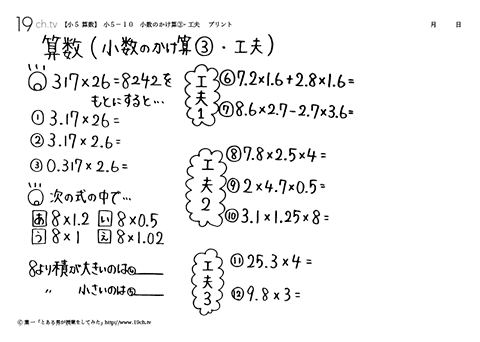 19ch.tv 【小5 算数】 小5-10 小数のかけ算③・工夫 プリント 月 日
算数（小数のかけ算③・工夫）
317×26=8242を
もとにすると…
① 3.17×26=
② 3.17×2.6=
③ 0.317×2.6=
次の式の中で…
あ 8×1.2 い 8×0.5
う 8×1 え 8×1.02
8より積が大きいのは④
〃 小さいのは⑤
工夫1
⑥7.2×1.6+2.8×1.6=
⑦8.6×2.7-2.7×3.6=
工夫2
⑧7.8×2.5×4=
⑨2×4.7×0.5=
⑩3.1×1.25×8=
工夫3
⑪25.3×4=
⑫9.8×3=
Ⓒ 葉一「とある男が授業をしてみた」http://www.19ch.tv